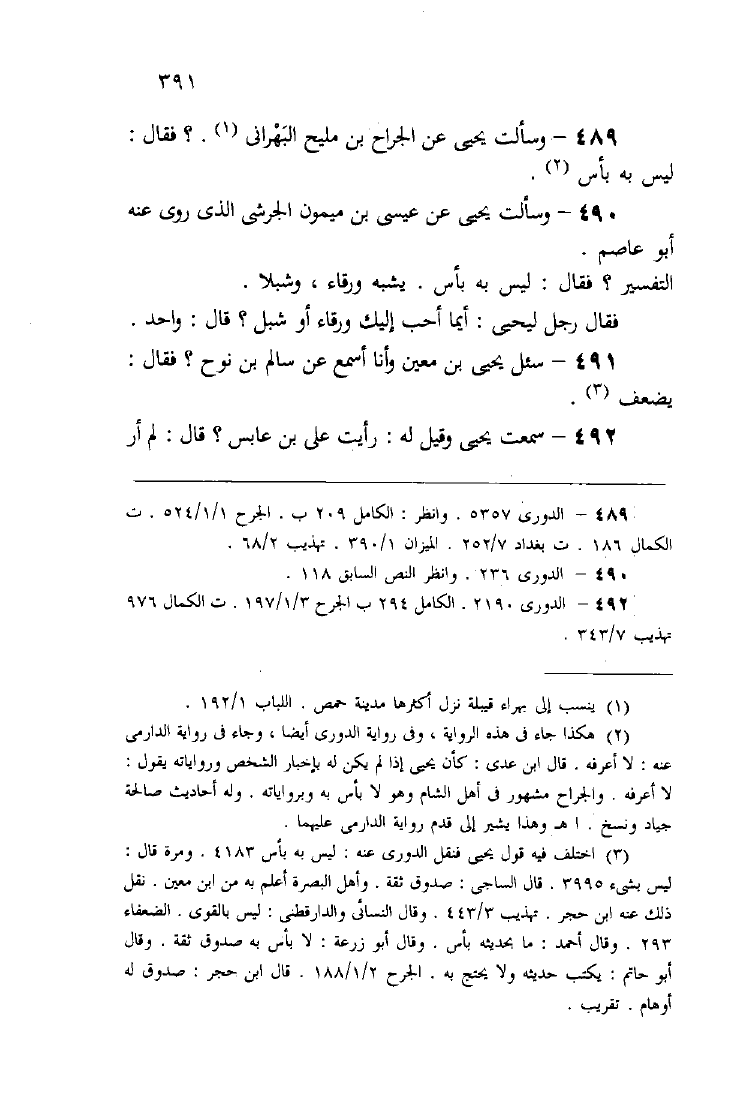 ٣٩١
٤٨٩ – وسألت يحيى عن الجراح بن مليح البَهْرانى (١) . ؟ فقال :
ليس به بأس (٢) .
٤٩٠ – وسألت يحيى عن عيسى بن ميمون الجرشى الذى روى عنه
أبو عاصم .
التفسير ؟ فقال : ليس به بأس . يشبه ورقاء ، وشبلا .
فقال رجل ليحيى : أيما أحب إليك ورقاء أو شبل ؟ قال : واحد .
٤٩١ – سئل يحيى بن معين وأنا أسمع عن سالم بن نوح ؟ فقال :
يضعف (٣) .
٤٩٢ – سمعت يحيى وقيل له : رأيت على بن عابس ؟ قال : لم أر
٤٨٩ – الدورى ٥٣٥٧ . وانظر : الكامل ٢٠٩ ب . الجرح ٥٢٤/١/١ . ت
الكمال ١٨٦ . ت بغداد ٢٥٢/٧ . الميزان ٣٩٠/١ . تهذيب ٦٨/٢ .
٤٩٠ – الدورى ٢٣٦ . وانظر النص السابق ١١٨ .
٤٩٢ – الدورى ٢١٩٠ . الكامل ٢٩٤ ب الجرح ١٩٧/١/٣ . ت الكمال ٩٧٦
تهذيب ٣٤٣/٧ .
(١) ينسب إلى بهراء قبيلة نزل أكثرها مدينة حمص . اللباب ١٩٢/١ .
(٢) هكذا جاء فى هذه الرواية ، وفى رواية الدورى أيضا ، وجاء فى رواية الدارمى
عنه : لا أعرفه . قال ابن عدى : كأن يحيى إذا لم يكن له بإخبار الشخص ورواياته يقول :
لا أعرفه . والجراح مشهور فى أهل الشام وهو لا بأس به وبرواياته . وله أحاديث صالحة
جياد ونسخ . ا هـ وهذا يشير إلى قدم رواية الدارمى عليهما .
(٣) اختلف فيه قول يحيى فنقل الدورى عنه : ليس به بأس ٤١٨٣ . ومرة قال :
ليس بشىء ٣٩٩٥ . قال الساجى : صدوق ثقة . وأهل البصرة أعلم به من ابن معين . نقل
ذلك عنه ابن حجر . تهذيب ٤٤٣/٣ . وقال النسائى والدارقطنى : ليس بالقوى . الضعفاء
٢٩٣ . وقال أحمد : ما بحديثه بأس . وقال أبو زرعة : لا بأس به صدوق ثقة . وقال
أبو حاتم : يكتب حديثه ولا يحتج به . الجرح ١٨٨/١/٢ . قال ابن حجر : صدوق له
أوهام . تقريب .